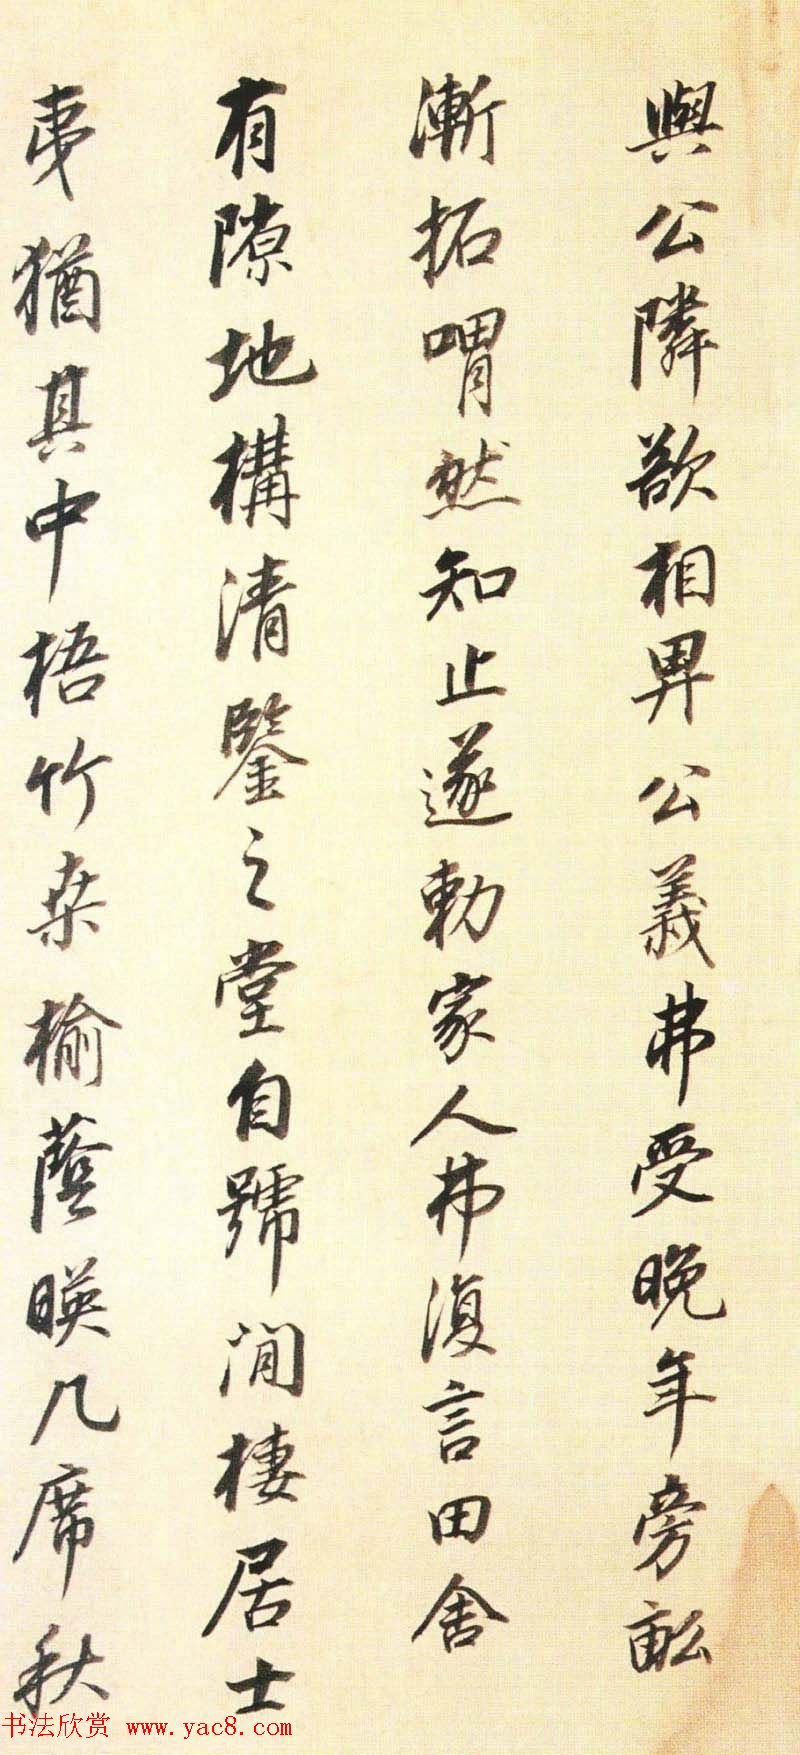 與公隣欲相畀公義弗受晚年旁畝
漸拓喟然知止遂勅家人弗復言田舍
有隙地構清鑒之堂自號閒棲居士
夷猶其中梧竹桑榆蔭暎几席秋
书法欣赏 www.yac8.com